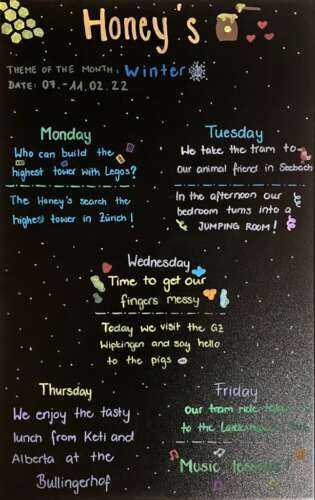 Honey's
THEME OF THE MONTH: Winter
DATE: 07.-11.02.22
Monday
Who can build the
highest tower with Legos?
The Honey's search the
highest tower in Zürich!
Tuesday
We take the tram to
our animal friend in Seebach
In the afternoon our
bedroom turns into a
JUMPING ROOM!
Wednesday
Time to get our
fingers messy
Today we visit the GZ
Wipkingen and say hello
to the pigs
Thursday
We enjoy the tasty
lunch from Keti and
Alberta at the
Bullingerhof
Friday
Our tram ride
to the
Music